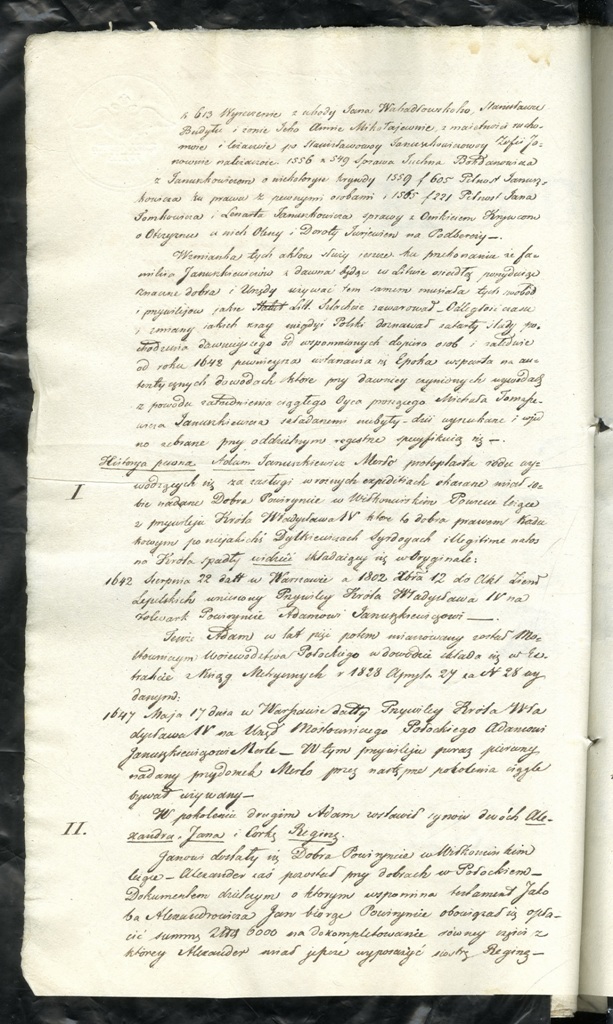 k 613 Wyrzeczenie z ugody Jana Stanisława
i żonie Jeho Annie Mikołajewnie, z maiętności rucho-
moie i leżącoie po Stanisławowoy Januszkiewiczowoy Zofii Ja-
nownie należącoie 1556 k 549 Sprawa Bohdanowicza
z Januszkowiczom o niekotorye krywdy 1559 f 605 Pilnost Janusz-
kowicza ku prawu z pewnymi osobami i 1565 f 221 Pilnost Jana
Tomkowicza i Lenarta Januszkowicza sprawy z
o u nich Oleny i Doroty Juriewien na Podberezy —.
Wzmianka tych aktow służy ieszcze ku przekonaniu że fa-
milia Januszkiewiczów z dawna będąc w Litwie osiadłą posiadaiąc
znaczne dobra i Urzędy używać tem samem musiała tych swobód
i przywileiow jakie Litt. Szlachcie zawarował — Odległość czasu
i zmiany jakich kray niegdyś Polski doznawał zatarły ślady po-
chodzenia dawnieyszego od wspomnionych dopiero osob i zaledwie
od roku 1648 pewnieysza ustanawia się Epoka wsparta na au-
tentycznych dowodach które przy dawniey czynionych wywodach
z powodu zatrudnienia ciągłego Oyca proszącego Michała Tomasze-
wicza Januszkiewicza składanemi niebyły — dziś wyszukane i
no zebrane przy oddzielnym registrze specyfikuią się —.
Historya pewna Adam Januszkiewicz Merło protoplasta rodu wy-
I wodzących się za zasługi w roznych expedicijach okazane miał so-
bie nadane Dobra Powiryncie w Wiłkomirskim Powiecie leżące
z przywileju Króla Władysława IV które to dobra prawem Kadu-
kowym po niejakichś Dylkiewiczach Syrdogach illegitime natos
na Króla spadły widzieć składaiący się w Oryginale:
1642 Sierpnia 22 datt w Warszawie a 1802 Xbra 12 do Akt Ziem
Lepelskich wniesiony Przywiley Króla Władysława IV na
Folwark Powirynie Adamowi Januszkiewiczowi —.
Tenże Adam w lat pięć potem mianowany został Mos-
towniczym Woiewodztwa Połockiego w dowodzie składa się w Ex-
trakcie z Xiąg Metrycznych r 1828 Apryla 27 za N 28 wy-
danym:
1647 Maja 17 dnia w Warszawie datty Przywiley Króla Wła-
dysława IV na Urząd Mostowniczego Połockiego Adamowi
Januszkiewiczowi Merle — W tym przywileju poraz pierwszy
nadany przydomek Merło przez następne pokolenia ciągle
bywał używany —
W pokoleniu drugim Adam zostawił synów dwóch Ale-
II. xandra, Jana i Corkę Reginę.
Janowi dostały się Dobra Powirynie w Wiłkomirskim
leżące — Alexander zaś pozostał przy dobrach w Połockiem —
Dokumentem dzielczym o którym wspomina testament Jako-
ba Alexandrowicza Jan biorąc Powirynie obowiązał się opła-
cić summę 6000 na dokompletowanie równey części z
którey Alexander miał jeszcze wyposażyć siostrę Reginę —